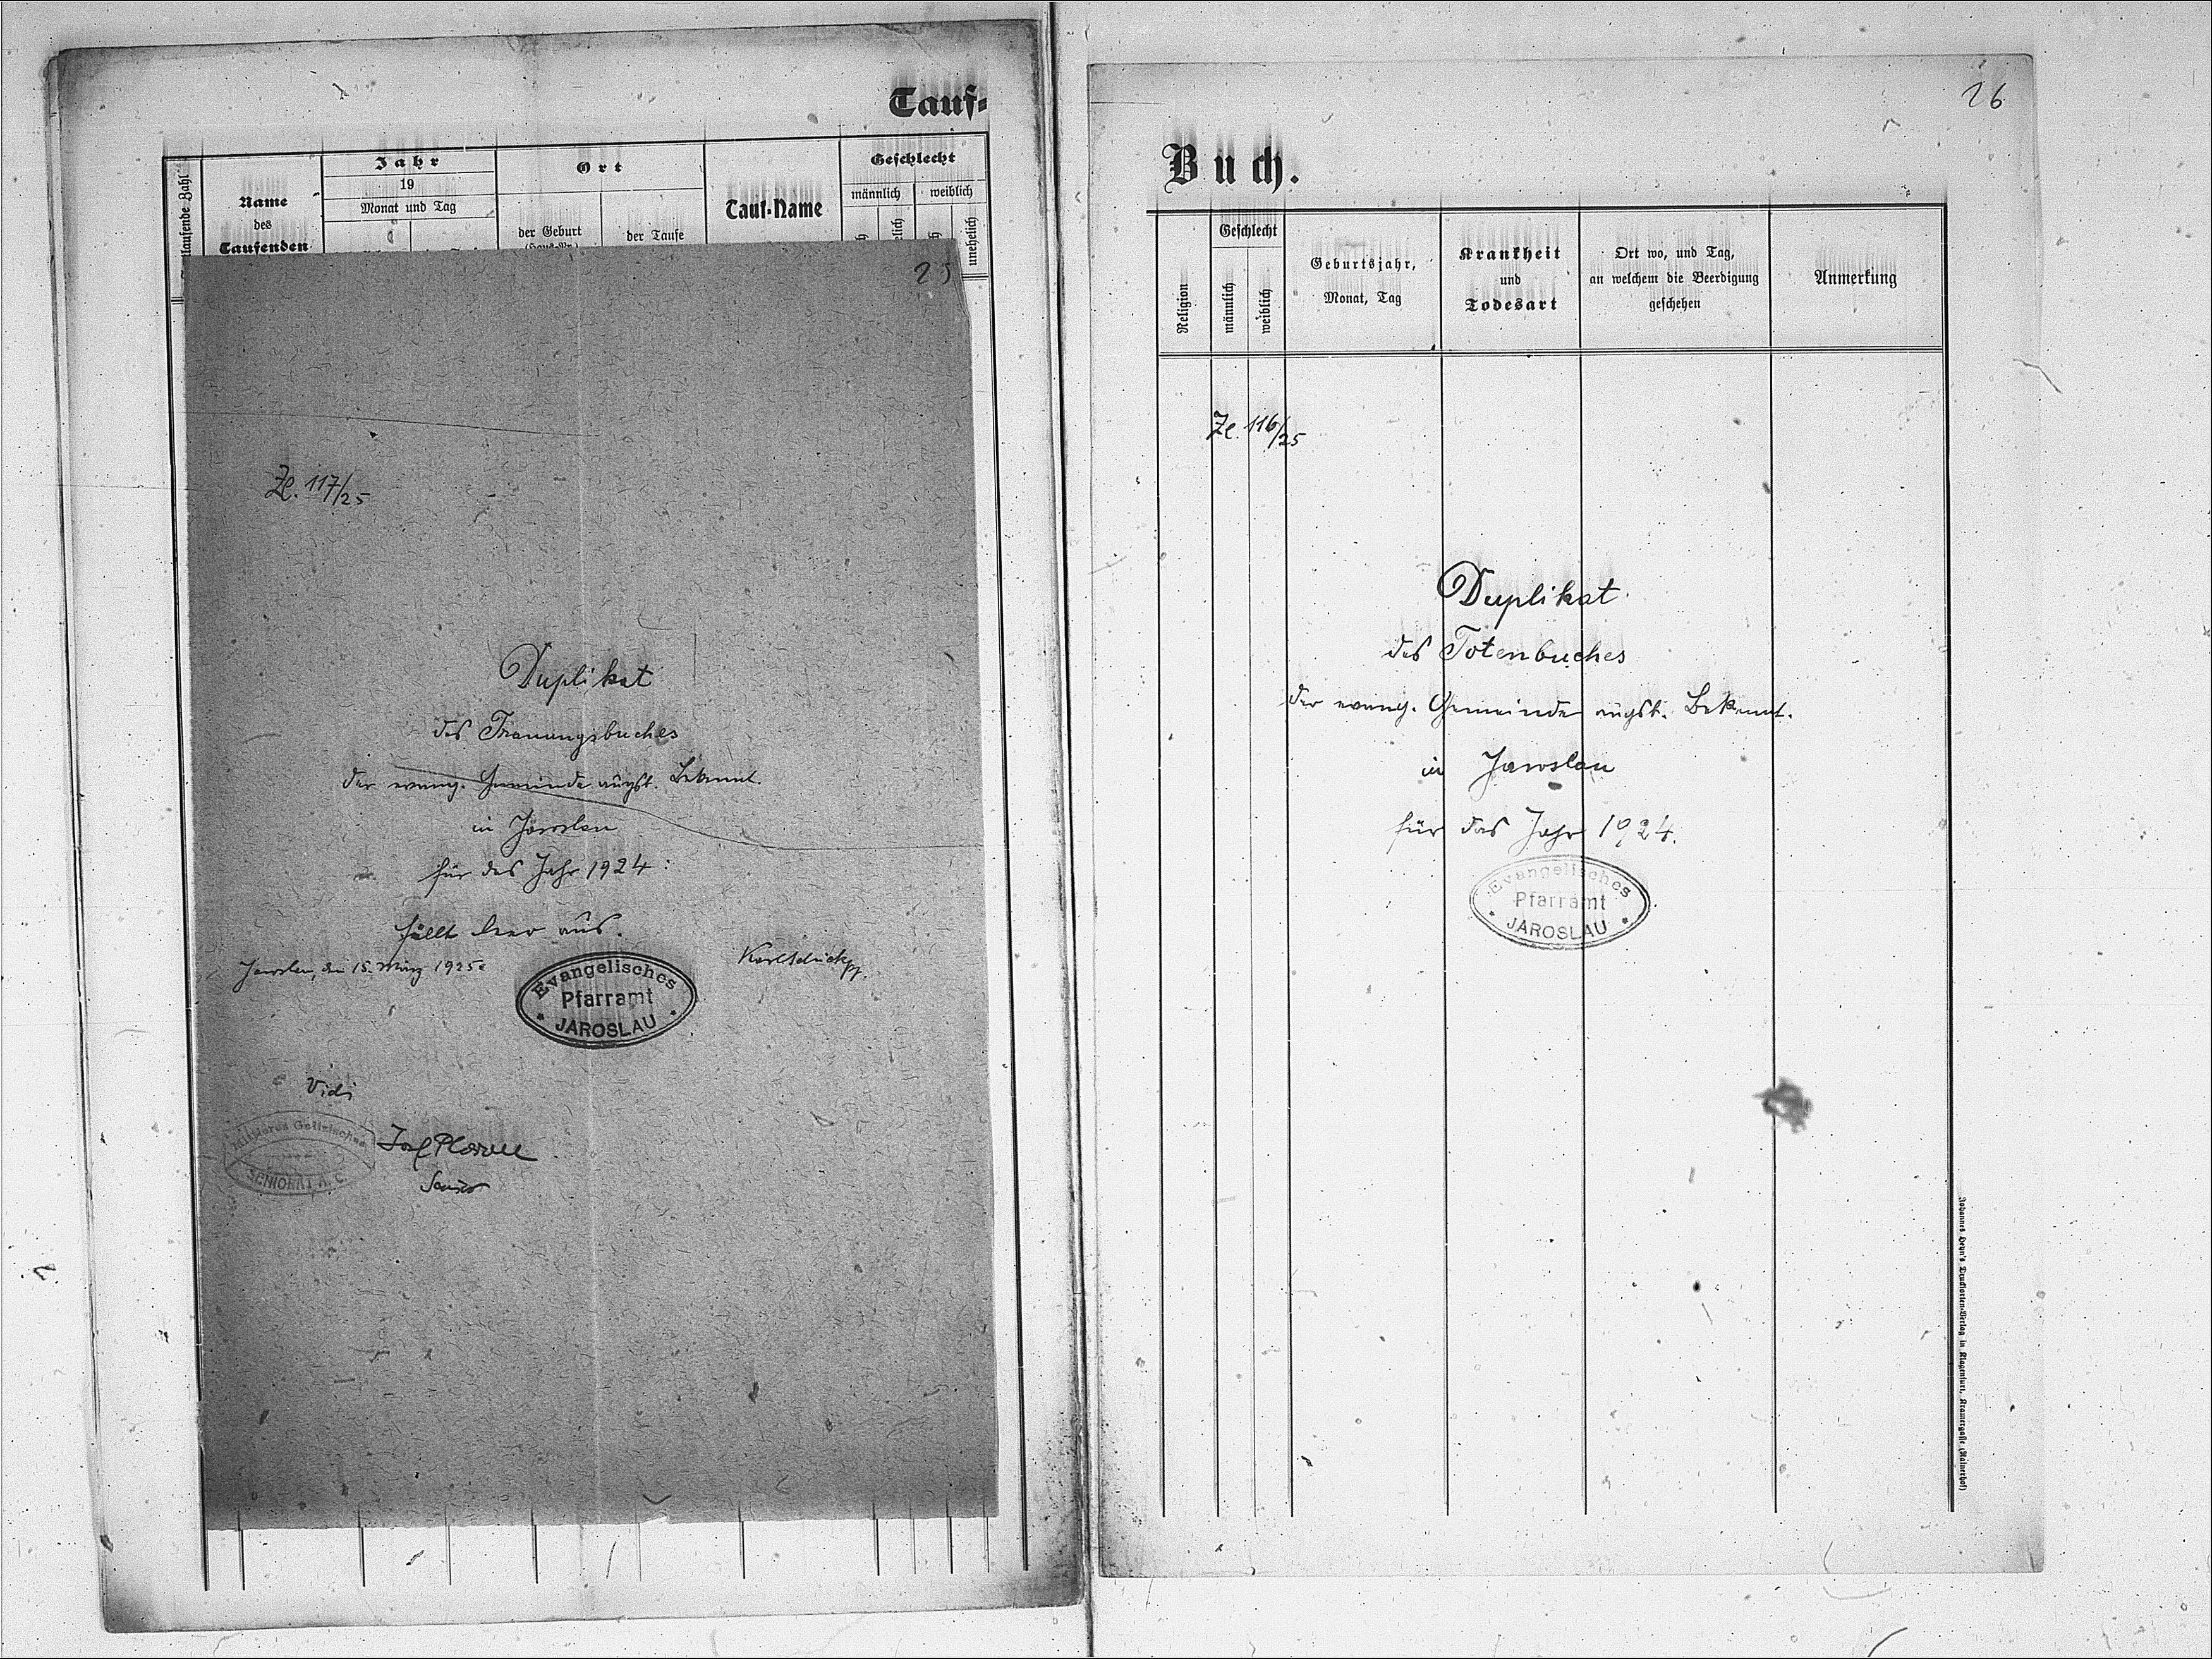 Tauf-
Laufende Zahl
Name
des
Taufenden
Jahr
19
Monat und Tag
Ort
der Geburt
(Haus-Nr.)
der Taufe
Tauf-Name
Geschlecht
männlich
weiblich
unehelich
25
Zl. 117/25
Duplikat
des Trauungsbuches
der evang. Gemeinde augsb. Bekennt.
in Jaroslau
für das Jahr 1924:
fällt leer aus.
Jaroslau, den 15. März 1925.
Evangelisches
Pfarramt
JAROSLAU
Vidi
Mittleres Galizisches
SENIORAT A. C.
Senior
26
Buch.
Religion
Geschlecht
männlich
weiblich
Geburtsjahr,
Monat, Tag
Krankheit
und
Todesart
Ort wo, und Tag,
an welchem die Beerdigung
geschehen
Anmerkung
Zl. 116/25
Duplikat
des Totenbuches
der evang. Gemeinde augsb. Bekennt.
in Jaroslau
für das Jahr 1924.
Evangelisches
Pfarramt
JAROSLAU
Johannes Heyn's Drucksorten-Verlag in Klagenfurt, Kramergasse (Rainerhof)